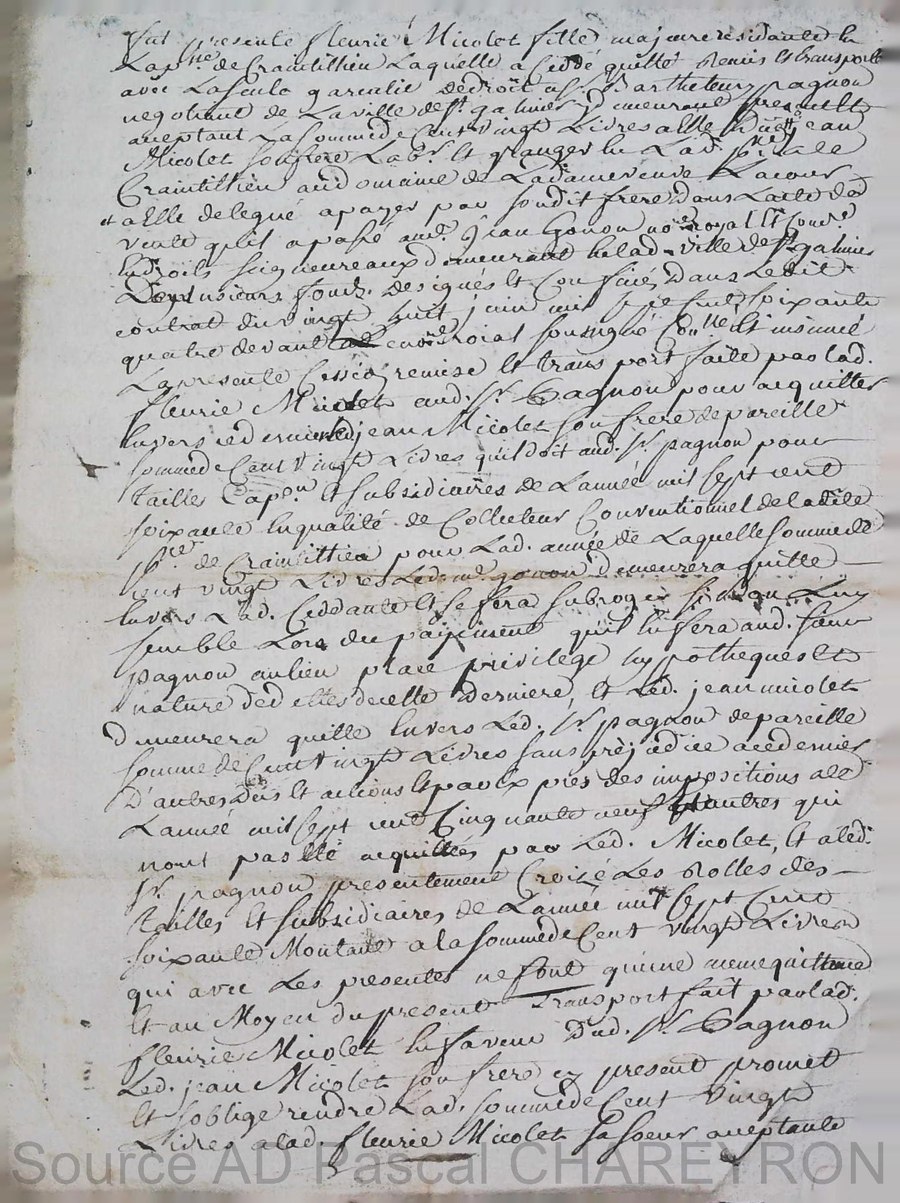 fut presente fleurie Micolet fille majeure residante en
La psse de Craintillieu Laquelle a Ceddé quitté Remis et transporté
avec La seule garantie de droit a sr Barthelemy pagnon
negotiant de La ville de st galmier y demeurant present et
aceptant La somme de Cent vingt Livres a elle Due par jean
Micolet son frere Labr et granger en Lad psse de
Craintillieu au domaine de La dame veuve Lacour
et a Elle delegué a payer par son dit frere dans L'acte de
vente qu'il a passé a me jean Gonon nore royal et Comre
en droits seigneureaux demeurant en lad. ville de st galmier
De plusieurs fonds designés et Confinés Dans Ledit
contrat du vingt huit juin mil sept Cent soixante
quatre devant le nore roial sousigné Conllé et insinué
La presente Cession remise et transport faite par lad.
fleurie Micolet aud. sr Pagnon pour acquitter
Envers ce dernier led jean Micolet son frere de pareille
somme de Cent vingt Livres qu'il doit aud. sr pagnon pour
tailles Capon et subsidiaires de L'année mil sept cent
soixante En qualité de Collecteur Conventionnel de ladite
psse de Craintillieu pour Lad. année de Laquelle somme de
cent vingt Livres Led. me gonon demeurera quitte
Envers Lad. Ceddante et se fera subroger si bon Luy
semble Lors du paiement qu'il en fera aud. sieur
pagnon au lieu place privilege hypotheques et
nature de dettes de celle derniere, et Led. jean micolet
demeurera quitte Envers Led. sr pagnon de pareille
somme de Cent vingt Livres sans prejudice a ce dernier
D'autres Dus et actions et par exprès des impositions de
L'année mil sept cent Cinquante neuf et autres qui
n'ont pas été acquittés par Led. Micolet, et a led.
sr pagnon presentement Croisé Les Rolles des
Tailles et subsidiaires de L'année mil sept Cent
soixante Montant a la somme de Cent vingt Livres
qui avec Les presentes ne font qu'une meme quittance
Et au Moyen du present transport fait par lad.
fleurie Micolet En faveur Dud. sr Pagnon
Led. jean Micolet son frere cy present promet
Et soblige rendre Lad. somme de Cent vingt
Livres a lad. fleurie Micolet sa soeur aceptante
Source AD Pascal CHAREYRON